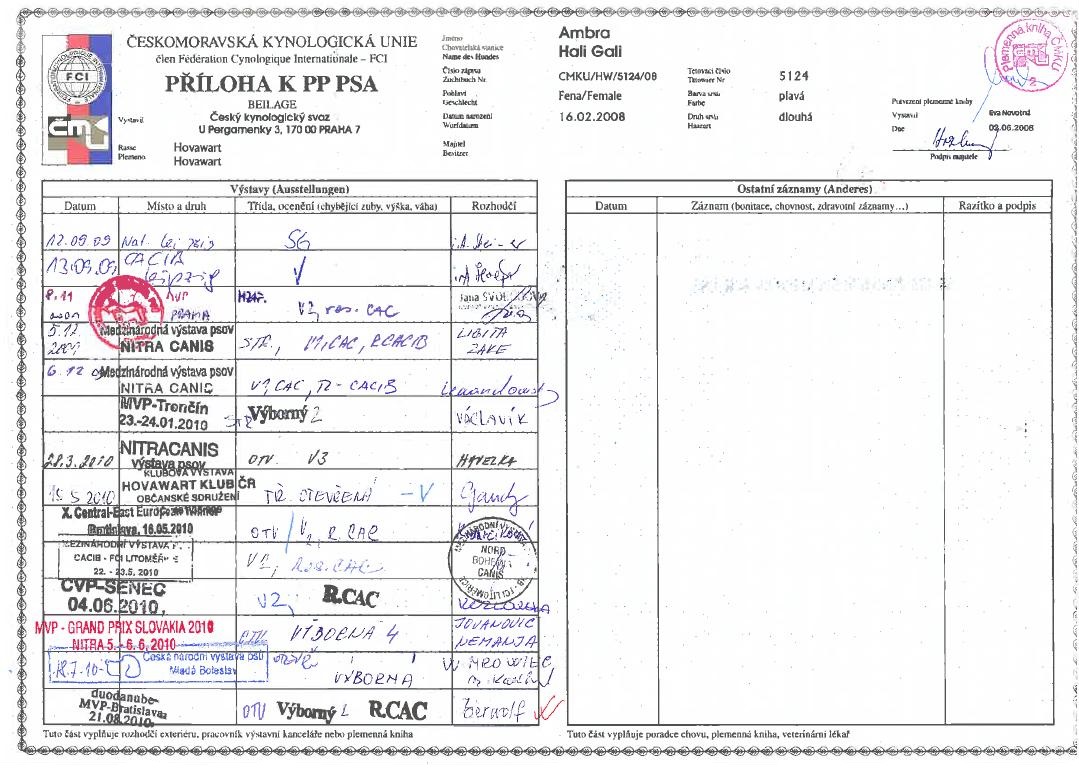 ČESKOMORAVSKÁ KYNOLOGICKÁ UNIE
člen Fédération Cynologique Internationále – FCI
PŘÍLOHA K PP PSA
BEILAGE
Vystavil Český kynologický svaz
U Pergamenky 3, 170 00 PRAHA 7
Rasse Hovawart
Plemeno Hovawart
FCI
Jméno Ambra
Chovatelská stanice Hali Gali
Name des Hundes
Číslo zápisu CMKU/HW/5124/08
Zuchtbuch Nr.
Pohlaví Fena/Female
Geschlecht
Datum narození 16.02.2008
Wurfdatum
Majitel
Besitzer
Tetovací číslo 5124
Tätowier Nr
Barva srsti plavá
Farbe
Druh srsti dlouhá
Haarart
Plemenná kniha ČMKU
2
Potvrzení plemenné knihy
Vystavil Eva Novotná
Dne 02.06.2008
Podpis majitele
Výstavy (Ausstellungen)
Datum Místo a druh Třída, ocenění (chybějící zuby, výška, váha) Rozhodčí
12.09.09 Nat. Leipzig SG
13.09.09 CACIB Leipzig V
8.11 MVP PRAHA V2, res. CAC Jana
5.12 2009 Medzinárodná výstava psov NITRA CANIS STR., V1, CAC, RCACIB LIGITA ZAKE
6.12 Medzinárodná výstava psov NITRA CANIS V1 CAC,
MVP-Trenčín 23.-24.01.2010 STR Výborný 2 VÁCLAVÍK
28.3.2010 NITRACANIS výstava psov OTV. V3 HAVELKA
5 2010 KLUBOVÁ VÝSTAVA HOVAWART KLUB ČR OBČANSKÉ SDRUŽENÍ TŘ. OTEVŘENÁ - V
X. Central-East European
Bratislava, 16.05.2010 OTV V2, R. CAC
MEZINÁRODNÍ VÝSTAVA P.
CACIB - FCI LITOMĚŘICE
22. - 23.5. 2010 V1, Res. CAC
MEZINÁRODNÍ VÝSTAVA NORD BOHEMIA CANIS FCI LITOMĚŘICE
CVP-SENEC 04.06.2010, V2, R.CAC
MVP - GRAND PRIX SLOVAKIA 2010
NITRA 5. - 6.6.2010 OTV. VÝBORNÁ 4 JOVANOVIC NEMANJA
18.7.10 Česká národní výstava psů Mladá Boleslav VÝBORNÁ
duodanube-
MVP-Bratislava
21.08.2010 OTV Výborný 2 R.CAC
Tuto část vyplňuje rozhodčí exteriéru, pracovník výstavní kanceláře nebo plemenná kniha
Ostatní záznamy (Anderes)
Datum Záznam (bonitace, chovnost, zdravotní záznamy...) Razítko a podpis
Tuto část vyplňuje poradce chovu, plemenná kniha, veterinární lékař